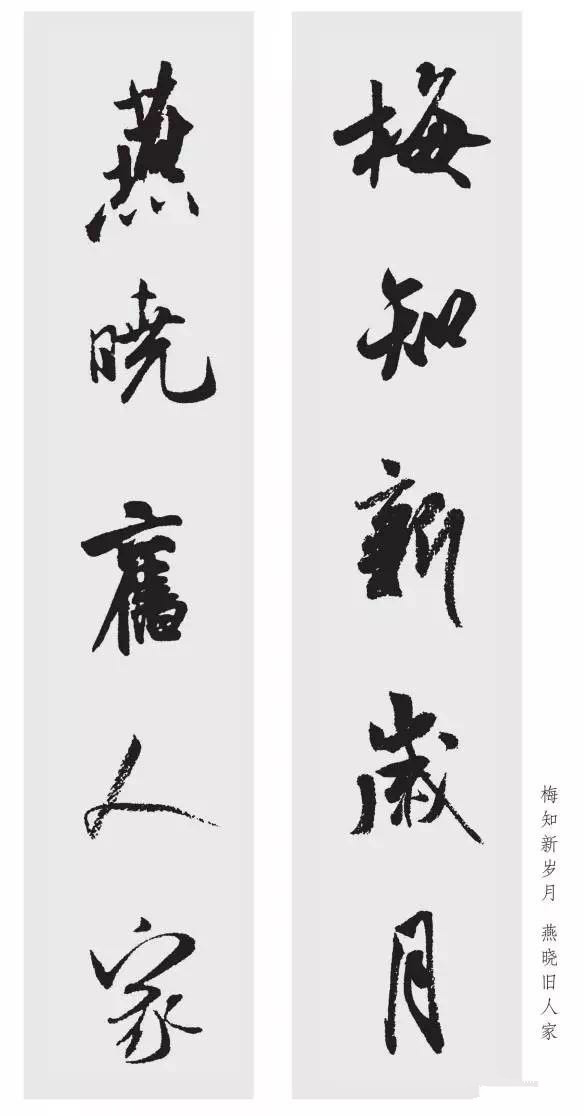 梅知新歲月
燕曉舊人家
梅知新岁月 燕晓旧人家